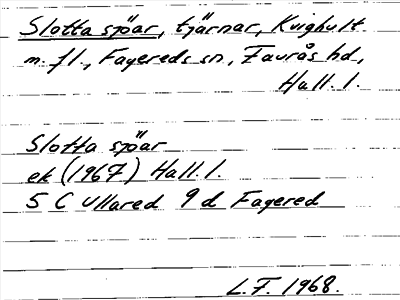 Slotta sjöar, tjärnar, Kvighult
m. fl., Fagereds sn, Faurås hd,
Hall. l.
Slotta sjöar
ek (1967) Hall. l.
5 C Ullared 9 d Fagered
L.F. 1968.